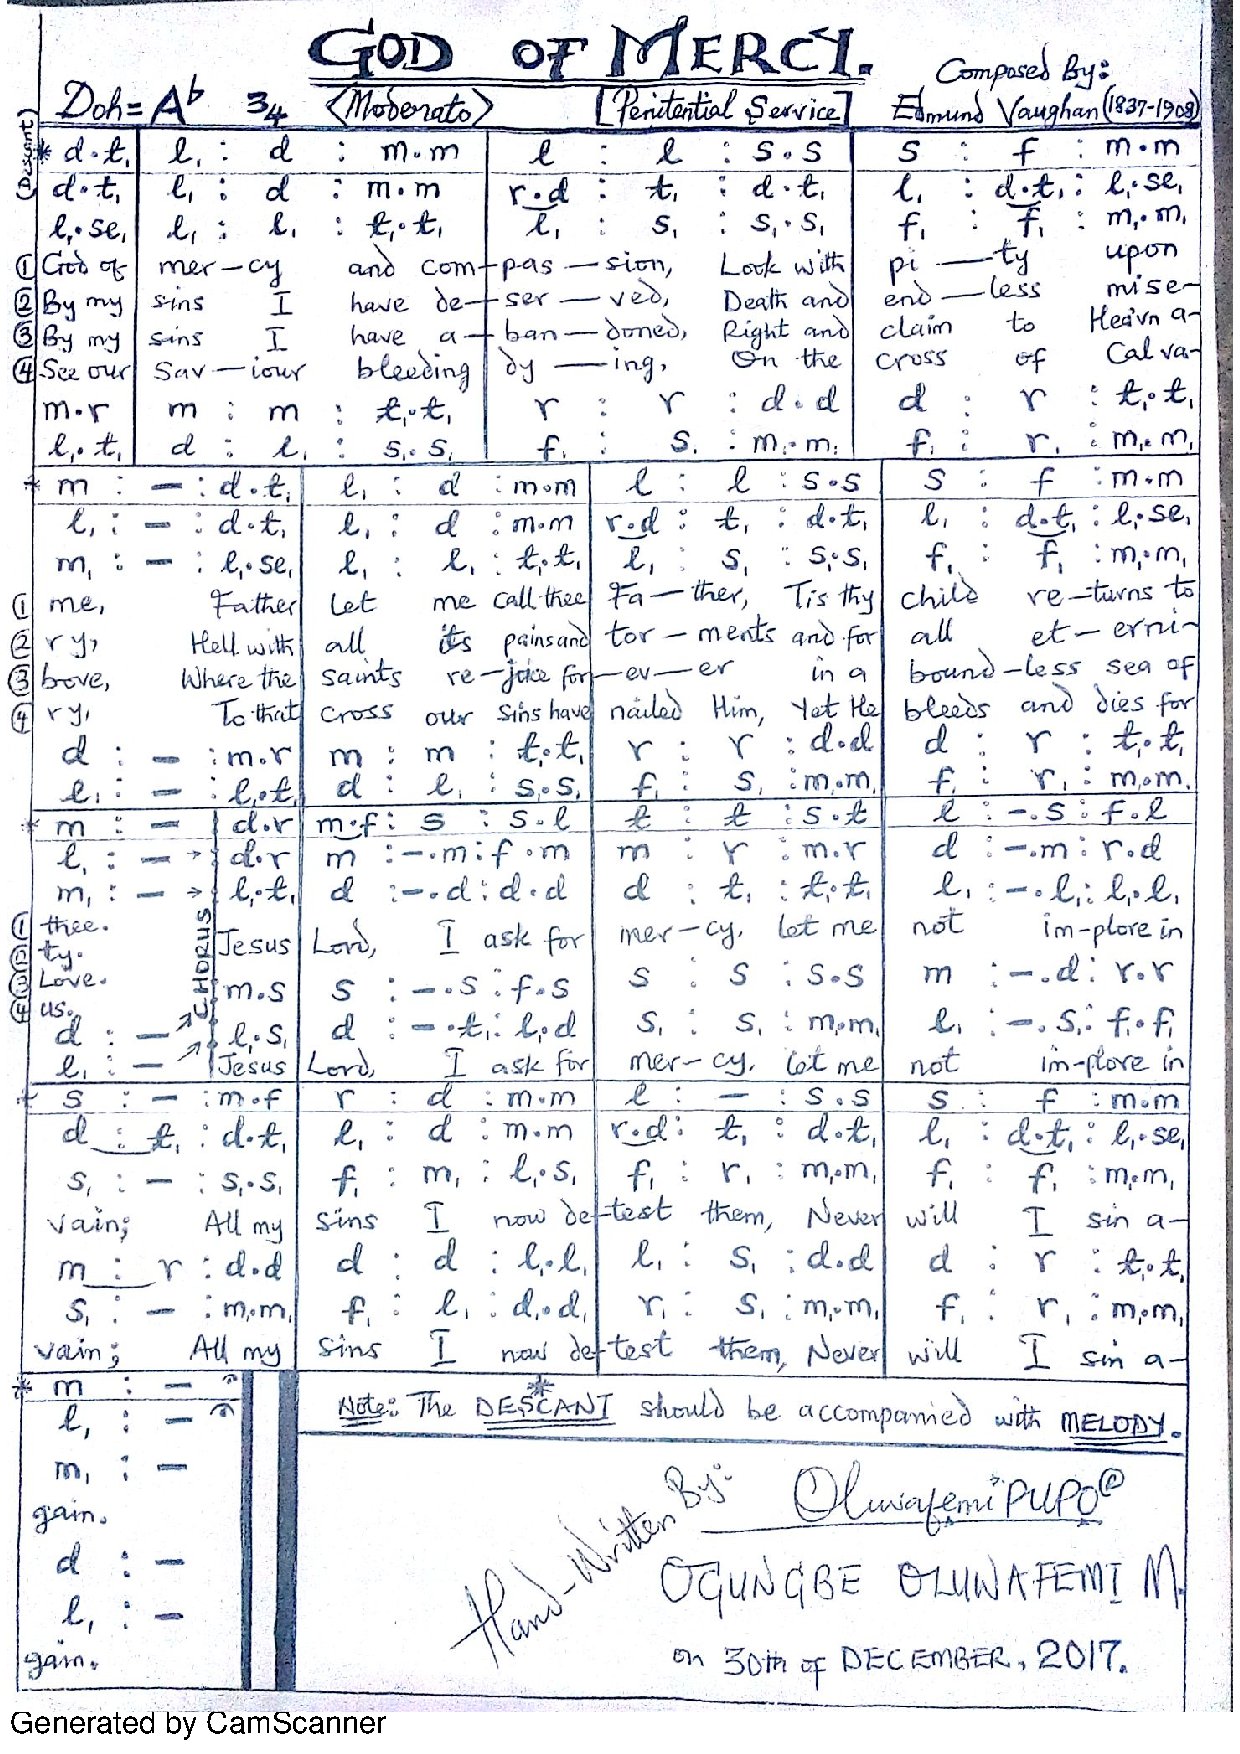 GOD OF MERCY.
Composed By:
Doh = A♭ 3/4 <Moderato> [Penitential Service] Edmund Vaughan (1837-1908)
(Descant)
* d.t, | l, : d : m.m | l : l : s.s | s : f : m.m
d.t, | l, : d : m.m | r.d : t, : d.t, | l, : d.t, : l,.se,
l,.se, | l, : l, : t,.t, | l, : s, : s,.s, | f, : f, : m,.m,
① God of mer-cy and com-pas-sion, Look with pi-ty upon
② By my sins I have de-ser-ved, Death and end-less mise-
③ By my sins I have a-ban-doned, Right and claim to Heav'n a-
④ See our Sav-iour bleeding dy-ing, On the cross of Calva-
m.r | m : m : t,.t, | r : r : d.d | d : r : t,.t,
l,.t, | d : l, : s,.s, | f, : s, : m,.m, | f, : r, : m,.m,
* m : - : d.t, | l, : d : m.m | l : l : s.s | s : f : m.m
l, : - : d.t, | l, : d : m.m | r.d : t, : d.t, | l, : d.t, : l,.se,
m, : - : l,.se, | l, : l, : t,.t, | l, : s, : s,.s, | f, : f, : m,.m,
① me, Father Let me call thee Fa-ther, Tis thy child re-turns to
② ry, Hell with all its pains and tor-ments and for all et-erni-
③ bove, Where the saints re-joice for-ev-er in a bound-less sea of
④ ry, To that cross our sins have nailed Him, Yet He bleeds and dies for
d : - : m.r | m : m : t,.t, | r : r : d.d | d : r : t,.t,
l, : - : l,.t, | d : l, : s,.s, | f, : s, : m,.m, | f, : r, : m,.m,
* m : - | d.r | m.f : s : s.l | t : t : s.t | l : -.s : f.l
l, : - → d.r | m : -.m : f.m | m : r : m.r | d : -.m : r.d
m, : - → l,.t, | d : -.d : d.d | d : t, : t,.t, | l, : -.l, : l,.l,
CHORUS
① thee. Jesus Lord, I ask for mer-cy. Let me not im-plore in
② ty.
③ Love. m.s | s : -.s : f.s | s : s : s.s | m : -.d : r.r
④ us.
d : - → l,.s, | d : -.t, : l,.d | s, : s, : m,.m, | l, : -.s, : f,.f,
l, : - → Jesus Lord, I ask for mer-cy. Let me not im-plore in
* s : - : m.f | r : d : m.m | l : - : s.s | s : f : m.m
d : t, : d.t, | l, : d : m.m | r.d : t, : d.t, | l, : d.t, : l,.se,
s, : - : s,.s, | f, : m, : l,.s, | f, : r, : m,.m, | f, : f, : m,.m,
vain; All my sins I now de-test them, Never will I sin a-
m : r : d.d | d : d : l,.l, | l, : s, : d.d | d : r : t,.t,
s, : - : m,.m, | f, : l, : d,.d, | r, : s, : m,.m, | f, : r, : m,.m,
vain; All my sins I now de-test them, Never will I sin a-
* m : -
l, : -
m, : -
gain.
d : -
l, : -
gain.
Note: The DESCANT* should be accompanied with MELODY.
Hand-Written By: Oluwafemi PUPO@
OGUNGBE OLUWAFEMI M.
on 30th of DECEMBER, 2017.
Generated by CamScanner